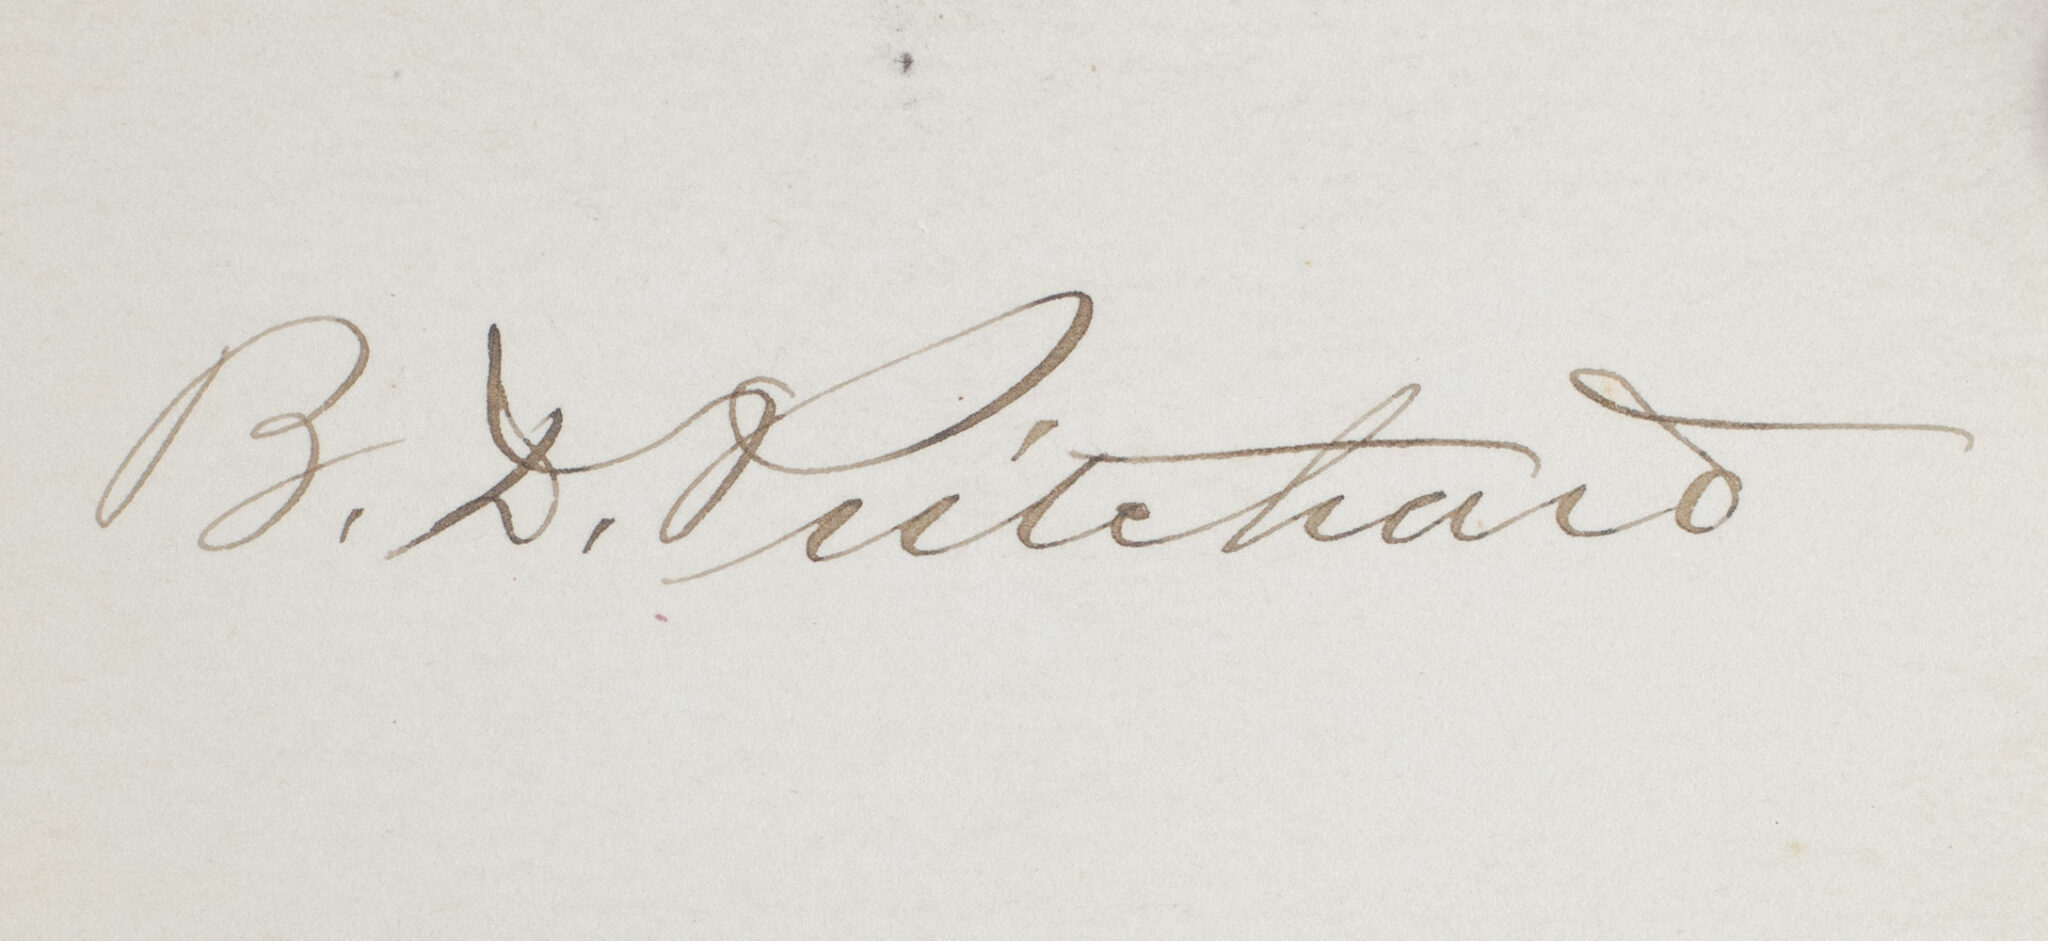 B. D. Pritchard